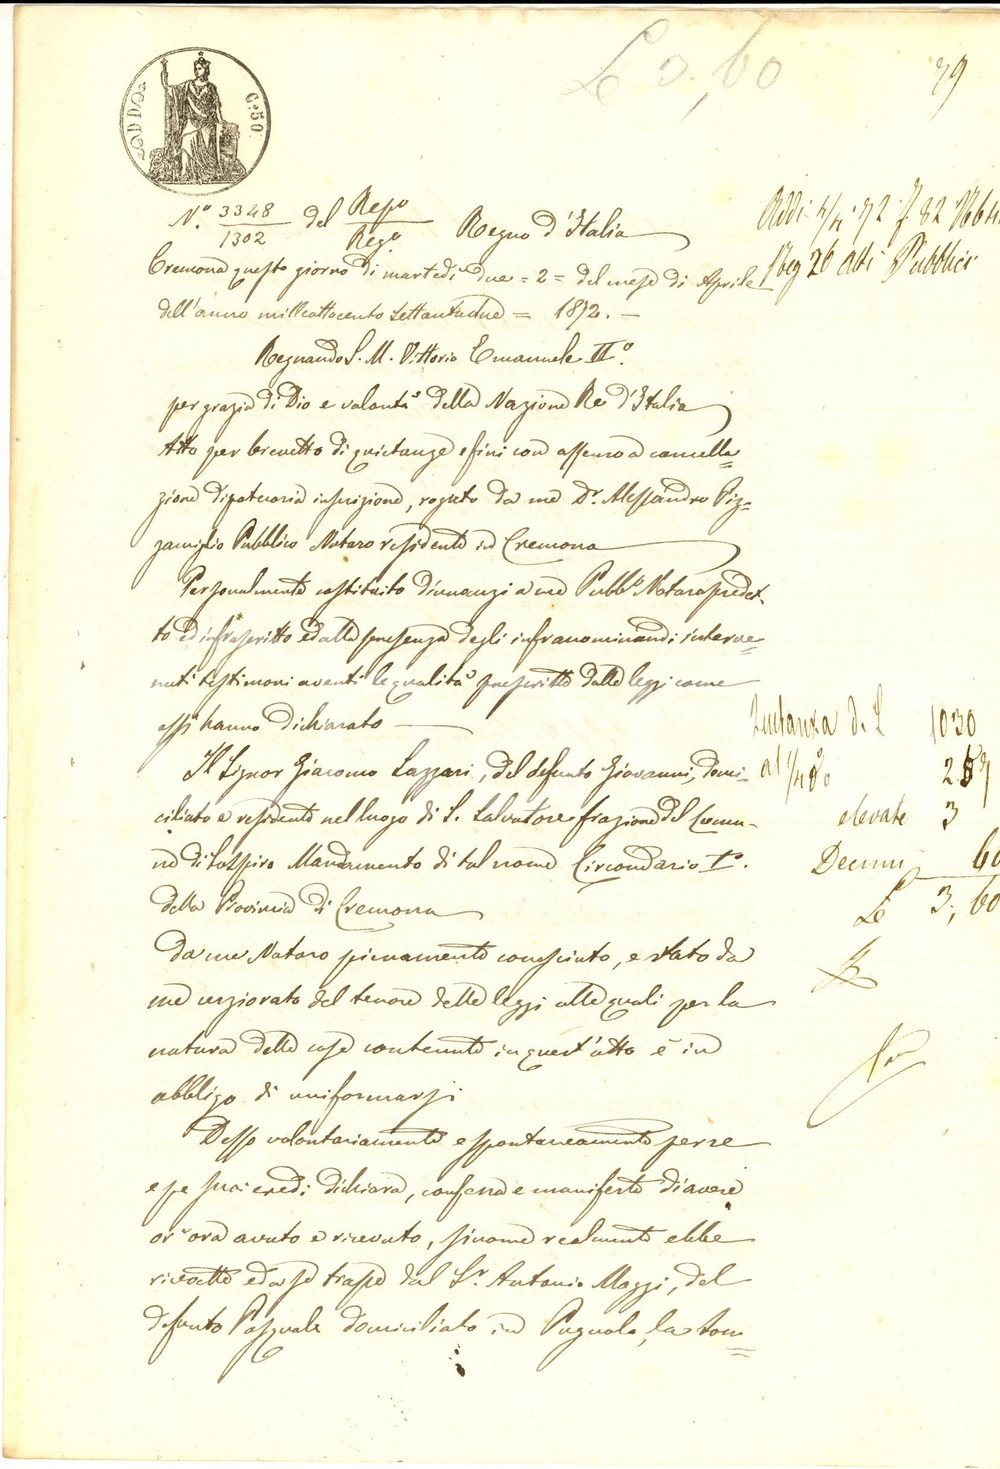 L 3,60
79
C.i 50
N.º 3348/1302 del Repº/Regº Regno d'Italia
Addi 4/4 72 f. 82 Nº 64
Reg 26 Atti Pubblici
Cremona questo giorno di martedì due = 2 = del mese di Aprile
dell'anno milleottocento settantadue = 1872. —
Regnando S. M. Vittorio Emanuele IIº.
per grazia di Dio e volontà della Nazione Re d'Italia
Atto per brevetto di quietanza e fini con assenso a cancella=
zione d'ipotecaria inscrizione, rogato da me Dr. Alessandro Piz=
zamiglio Pubblico Notaro residente in Cremona
Personalmente costituito dinnanzi a me Pubb.º Notaro predet-
to ed infrascritto ed alla presenza degli infranominandi interve=
nuti testimoni aventi le qualità prescritte dalle leggi come
essi hanno dichiarato —
Il Signor Giacomo Lazzari, del defunto Giovanni, domi-
ciliato e residente nel luogo di S. Salvatore frazione del Comu-
ne di Sospiro Mandamento di tal nome Circondario Iº.
della Provincia di Cremona
Da me Notaro pienamente conosciuto, e stato da
me cerziorato del tenore delle leggi alle quali per la
natura delle cose contenute in quest'atto è in
obbligo di uniformarsi
Desso volontariamente e spontaneamente per se
e pe' suoi eredi dichiara, confessa e manifesta di avere
or' ora avuto e ricevuto, siccome realmente ebbe
ricevette ed a se trasse dal Sr. Antonio Maggi, del
defunto Pasquale domiciliato in Pugnolo, la som=
Quitanza di L 1030
al 1/4 %
elevate 3
Decimi 60
L 3,60